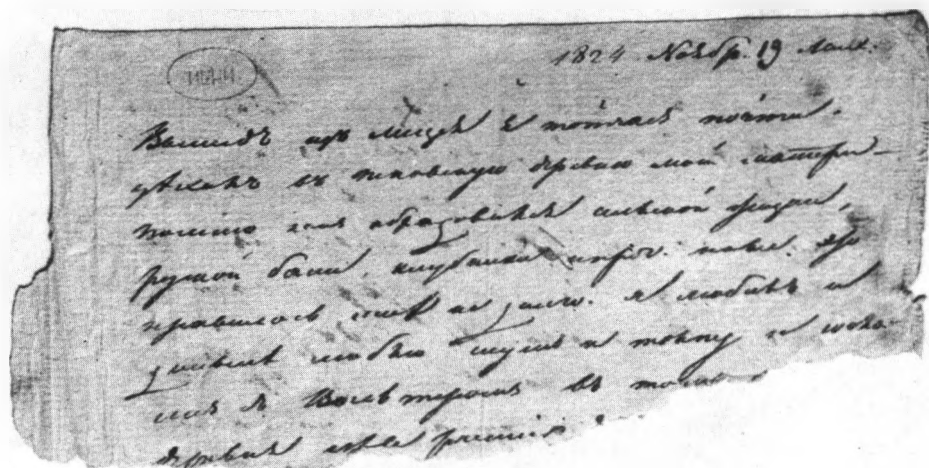 1824 Ноябр. 19 Мих.
Вышедъ изъ Лицея я тотчасъ почти
уѣхалъ въ Псковскую деревню моей матери –
помню какъ обрадовался сельской жизни,
русской бани, клубникѣ и проч. но все это
нравилось мнѣ не долго. Я любилъ и
донынѣ люблю шумъ и толпу и согла-
сенъ съ Вольтеромъ въ томъ
деревня est le premier